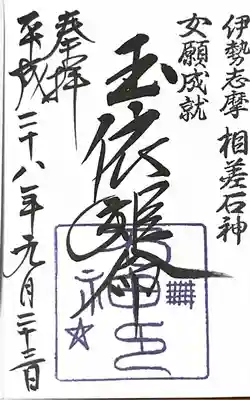 伊勢志摩 相差石神
女願成就
玉依姫命
奉拝
平成二十八年九月二十三日